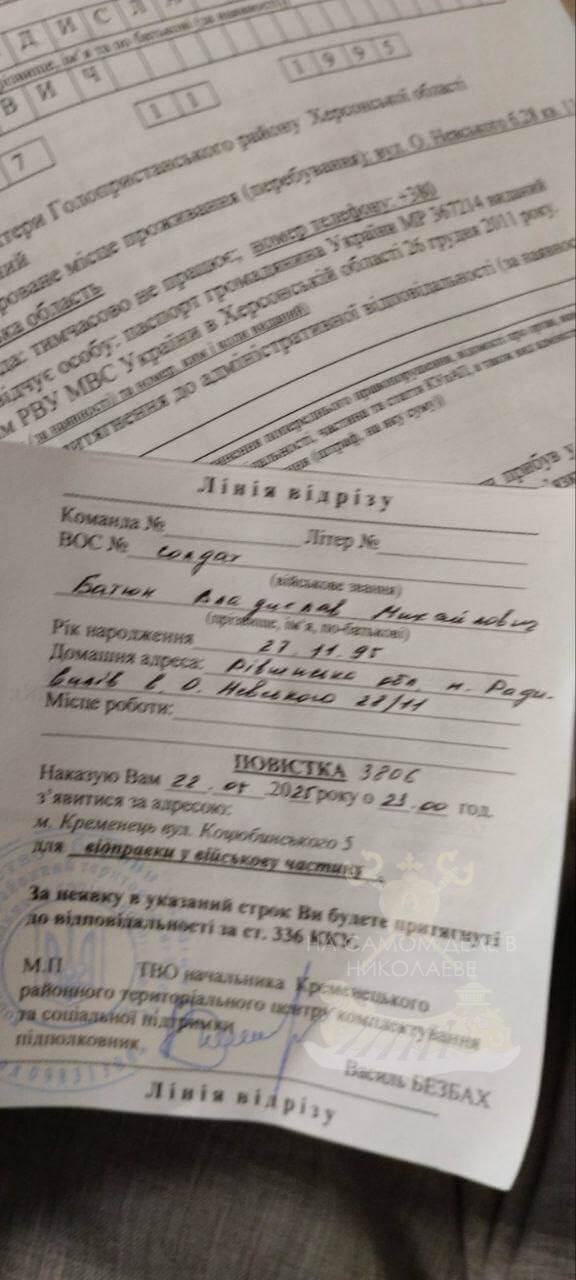 ДИСЛА
ім'я та по батькові (за наявності)
ВИЧ
11
1995
7
Голопристанського району Херсонської області
місце проживання (перебування): вул. О. Невського б.28 кв. 11
область
тимчасово не працює; номер телефону: +380
особу: паспорт громадянина України МР 367214 виданий
РВУ МВС України в Херсонській області 26 грудня 2011 року.
до адміністративної відповідальності (за
прибув у
Лінія відрізу
Команда № Літер №
ВОС № солдат
(військове звання)
Батюк Владислав Михайлович
(прізвище, ім'я, по-батькові)
Рік народження 27.11.95
Домашня адреса: Рівненська обл. м. Ради-
вилів в. О. Невського 28/11
Місце роботи:
ПОВІСТКА 3806
Наказую Вам 22. 2025 року о 23.00 год.
з'явитися за адресою:
м. Кременець вул. Коцюбинського 5
для відправки у військову частину
За неявку в указаний строк Ви будете притягнуті
до відповідальності за ст. 336 ККУ
НА САМОМ ДЕЛЕ В
НИКОЛАЕВЕ
М.П ТВО начальника Кременецького
районного територіального центру комплектування
та соціальної підтримки
підполковник
Василь БЕЗБАХ
Лінія відрізу